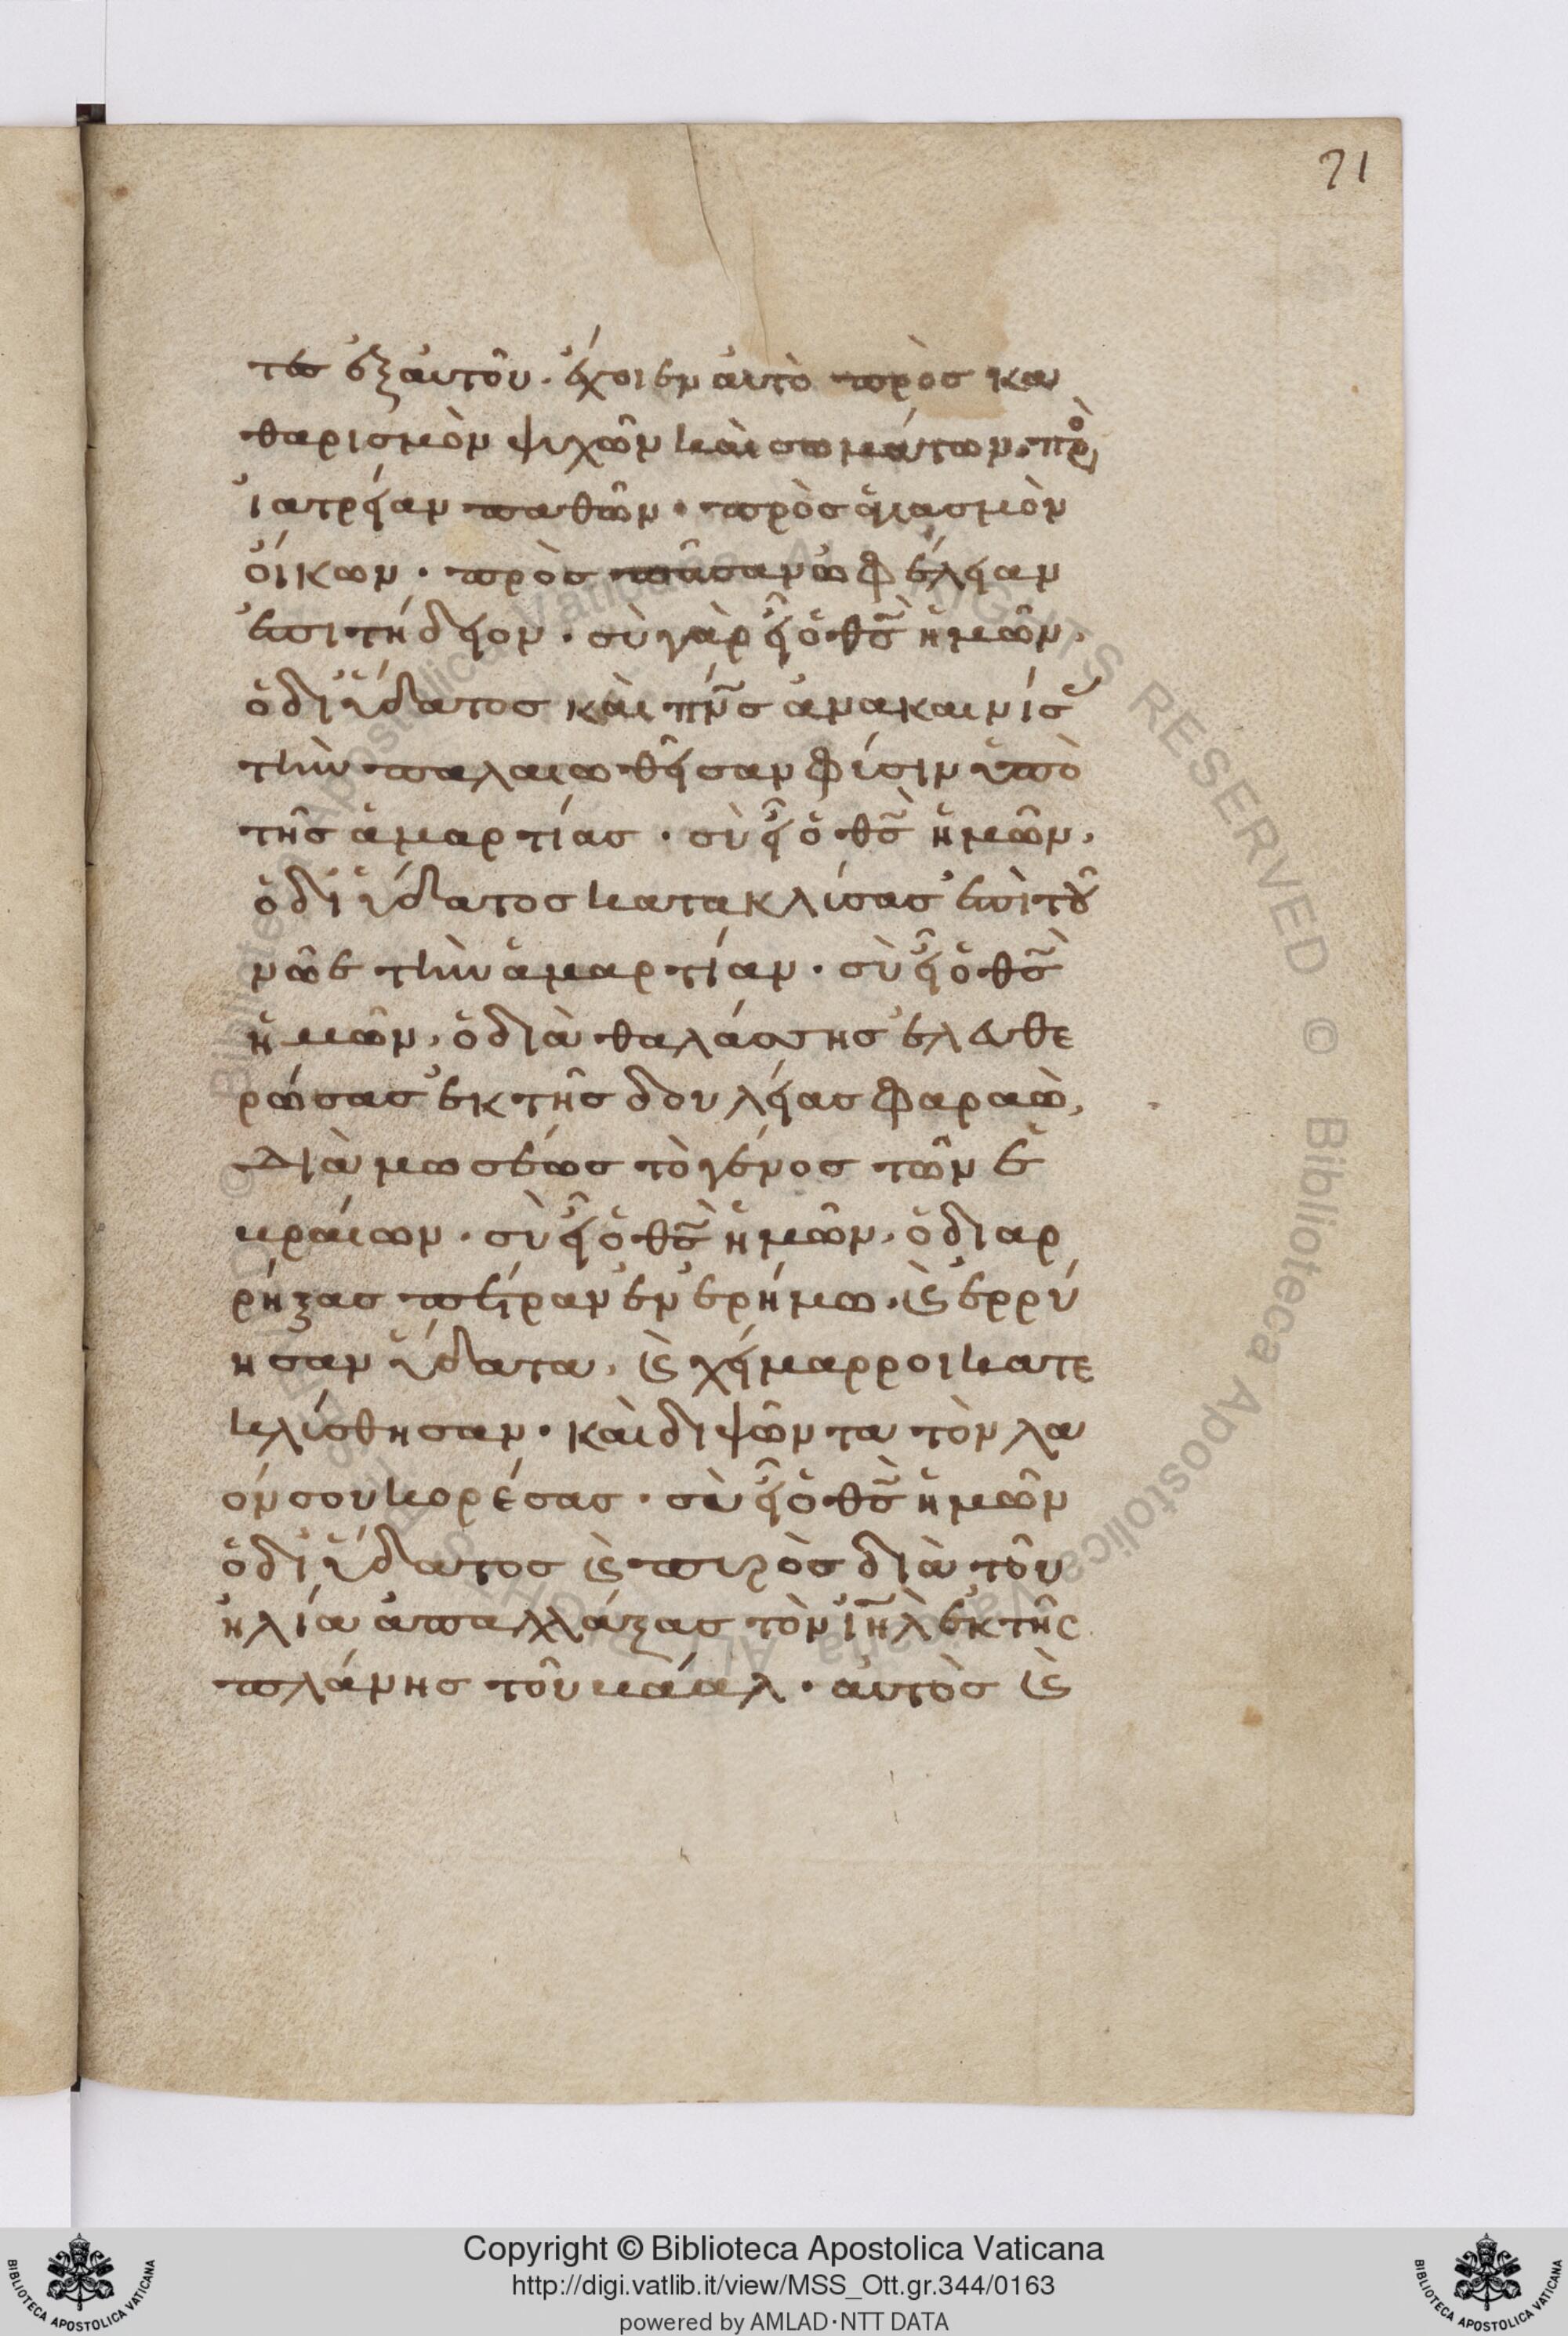 71
τες ἐξ αὐτοῦ · ἔχοιεν αὐτὸ πρὸς κα
θαρισμὸν ψυχῶν καὶ σωμάτων · πρὸ
ἰατρείαν παθῶν · πρὸς ἁγιασμὸν
οἴκων · πρὸς πᾶσαν ὠφέλειαν
ἐπιτήδειον · σὺ γὰρ εἶ ὁ θς̃ ἡμῶν,
ὁ δι' ὕδατος καὶ πνς̃ ἀνακαινίσ
τὴν παλαιωθεῖσαν φύσιν ὑπὸ
τῆς ἁμαρτίας · σὺ εἶ ὁ θς̃ ἡμῶν,
ὁ δι' ὕδατος κατακλύσας ἐπὶ τοῦ
νῶε τὴν ἁμαρτίαν · σὺ εἶ ὁ θς̃
ἡμῶν, ὁ διὰ θαλάσσης ἐλευθε
ρώσας ἐκ τῆς δουλείας φαραὼ,
Διὰ μωσέως τὸ γένος τῶν ἑ
βραίων · σὺ εἶ ὁ θς̃ ἡμῶν, ὁ διαρ
ρήξας πέτραν ἐν ἐρήμω · ϗ ἐρρύ
ησαν ὕδατα, ϗ χείμαρροι κατε
κλύσθησαν · καὶ διψῶντα τὸν λα
όν σου κορέσας · σὺ εἶ ὁ θς̃ ἡμῶν
ὁ δι' ὕδατος ϗ πυρὸς διὰ τοῦ
ἠλία ἀπαλλάξας τὸν ιη̃λ ἐκ τῆς
πλάνης τοῦ βάαλ · αὐτὸς ϗ
© Biblioteca Apostolica Vaticana ALL RIGHTS RESERVED © Biblioteca Apostolica Vaticana ALL RIGHTS RESERVED
Copyright © Biblioteca Apostolica Vaticana
http://digi.vatlib.it/view/MSS_Ott.gr.344/0163
powered by AMLAD·NTT DATA
BIBLIOTECA APOSTOLICA VATICANA
BIBLIOTECA APOSTOLICA VATICANA